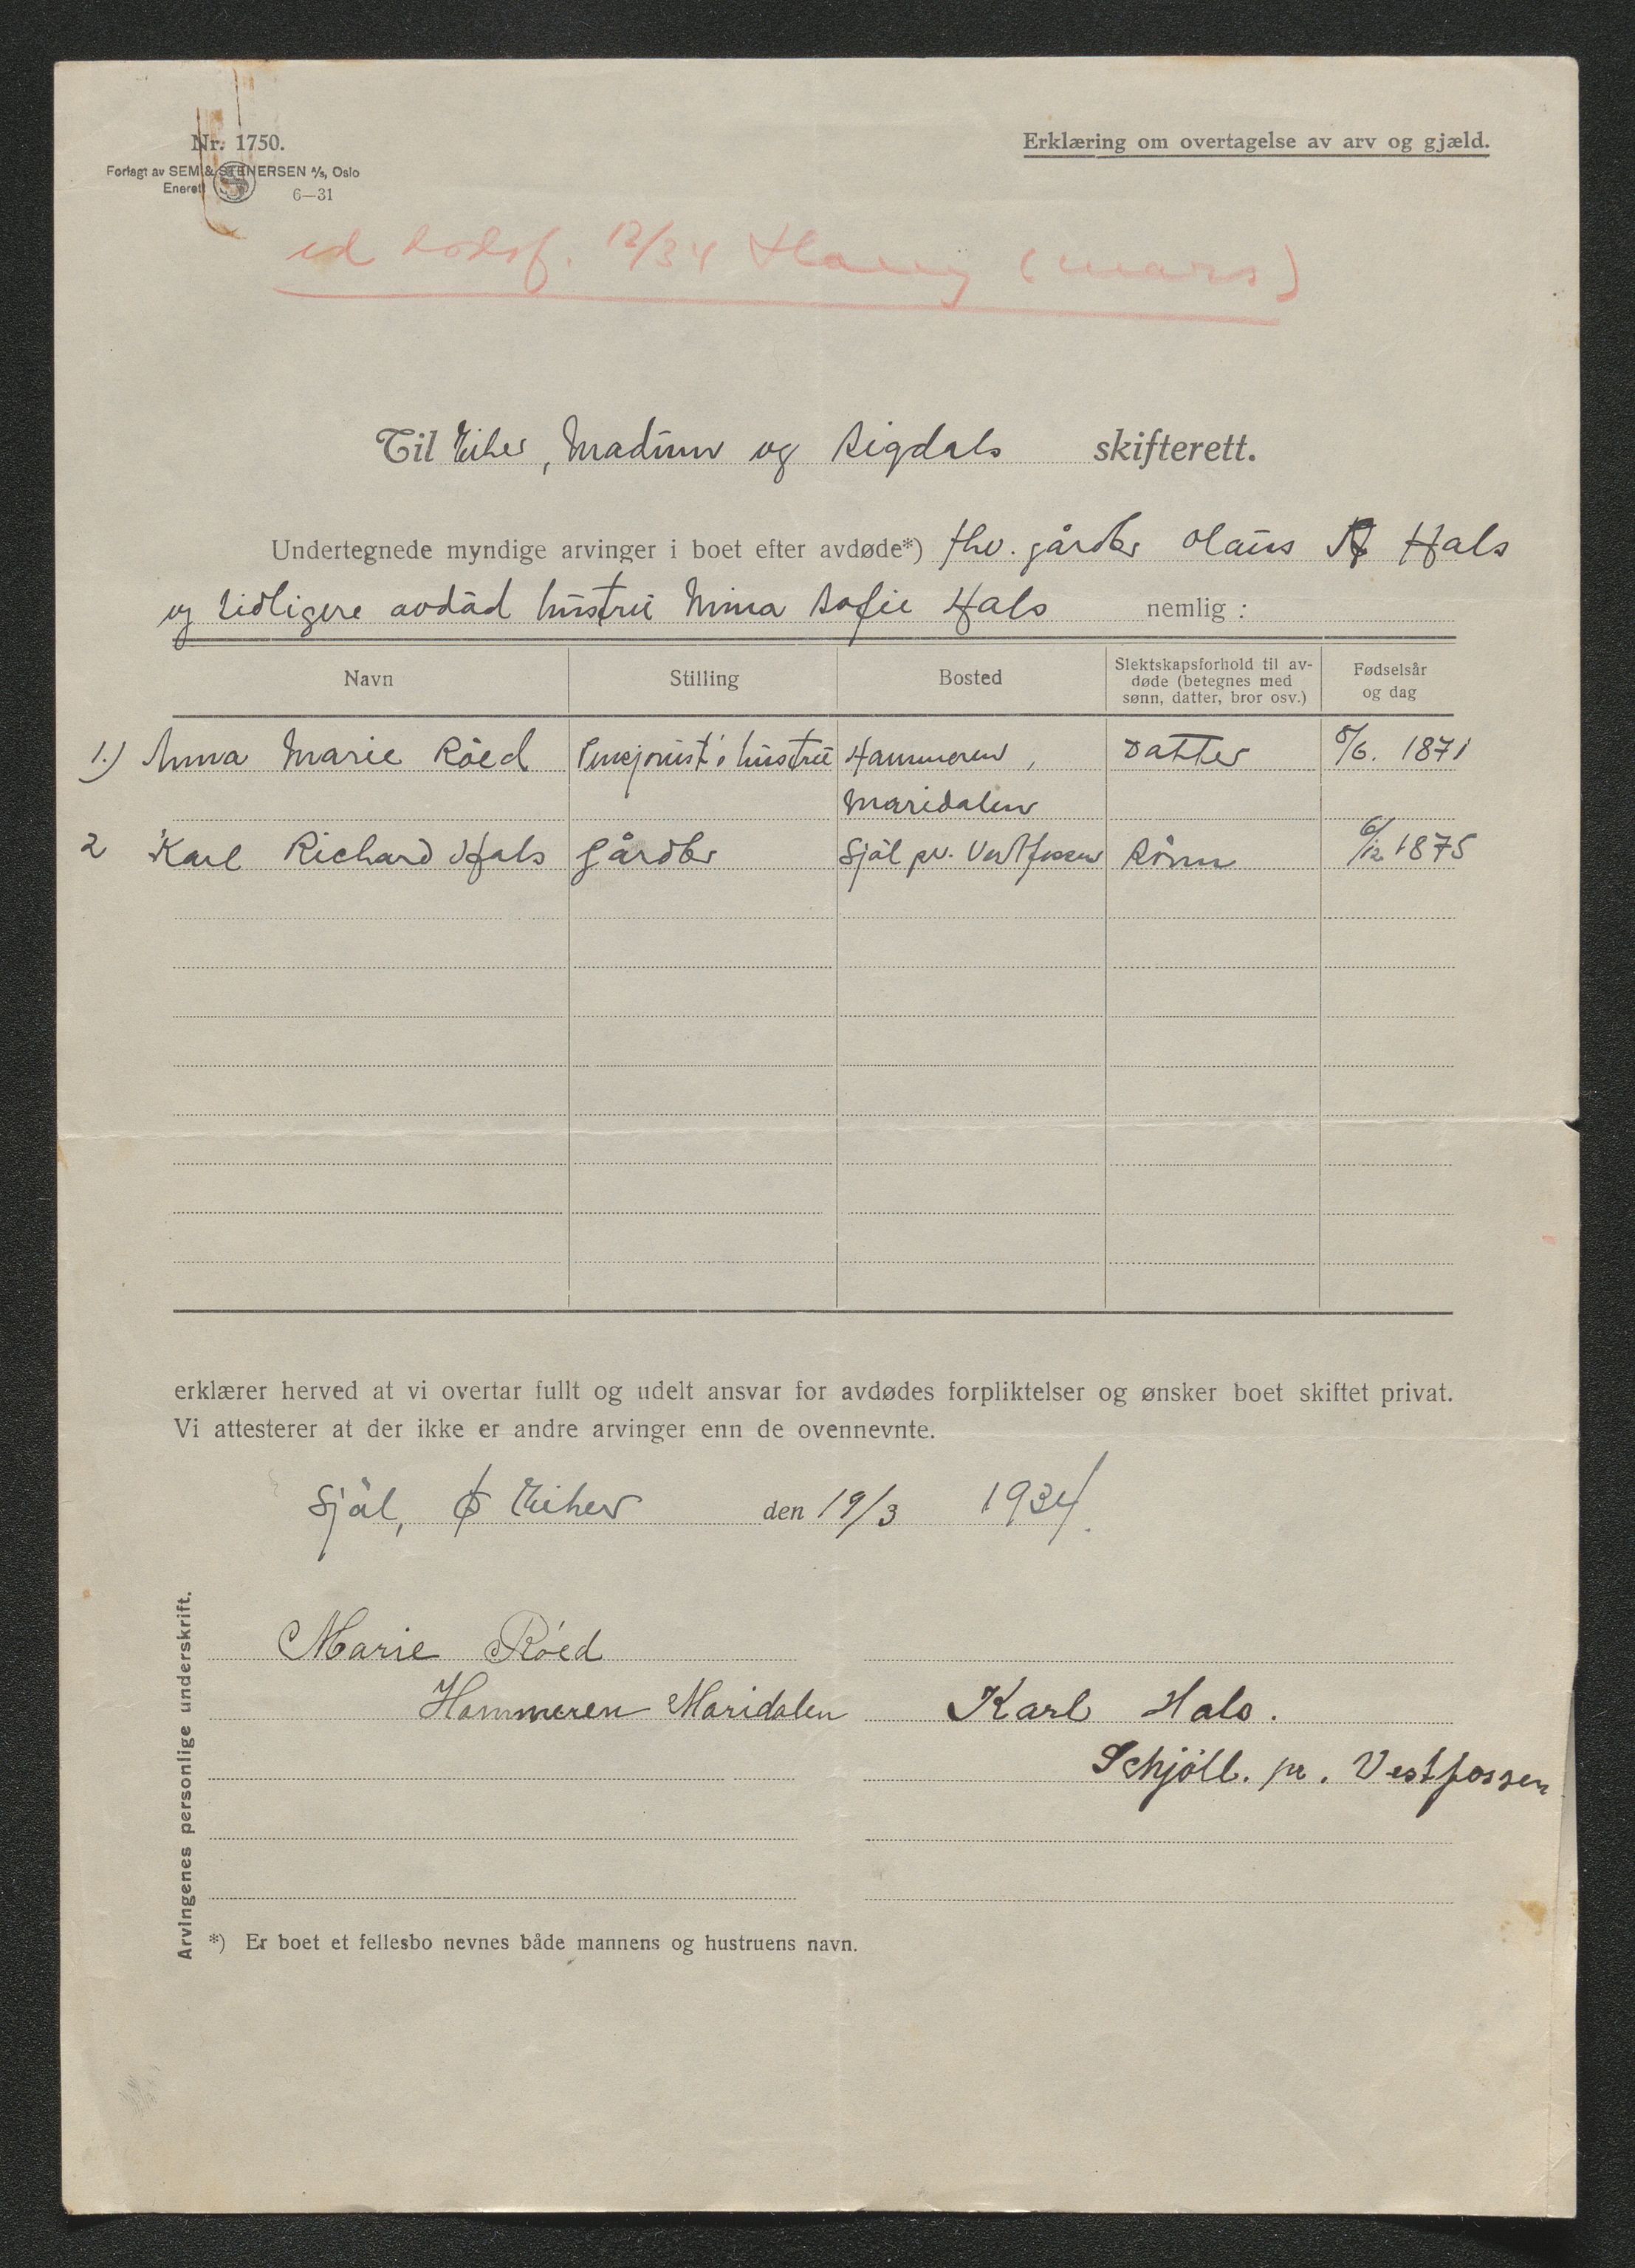 Nr. 1750.
Forlagt av SEM & STENERSEN A/S, Oslo
Enerett 6—31
Erklæring om overtagelse av arv og gjæld.
12/34 (mars)
Til Eiker, Modum og Sigdals skifterett.
Undertegnede myndige arvinger i boet efter avdøde*) fhv. gårdbr Olaus A Hals
og tidligere avdöd hustru Mina Sofie Hals nemlig :
Navn Stilling Bosted Slektskapsforhold til avdøde (betegnes med sønn, datter, bror osv.) Fødselsår og dag
1.) Anna Marie Röed Pensjonist's hustru Hammeren, Datter 5/6. 1871
Maridalen
2 Karl Richard Hals Gårdbr Sjöl pr. Vestfossen Sönn 6/12 1875
erklærer herved at vi overtar fullt og udelt ansvar for avdødes forpliktelser og ønsker boet skiftet privat.
Vi attesterer at der ikke er andre arvinger enn de ovennevnte.
Sjöl, Ø Eiker den 19/3 1934.
Arvingenes personlige underskrift.
Marie Röed
Hammeren Maridalen
Karl Hals.
Schjöll. pr. Vestfossen
*) Er boet et fellesbo nevnes både mannens og hustruens navn.